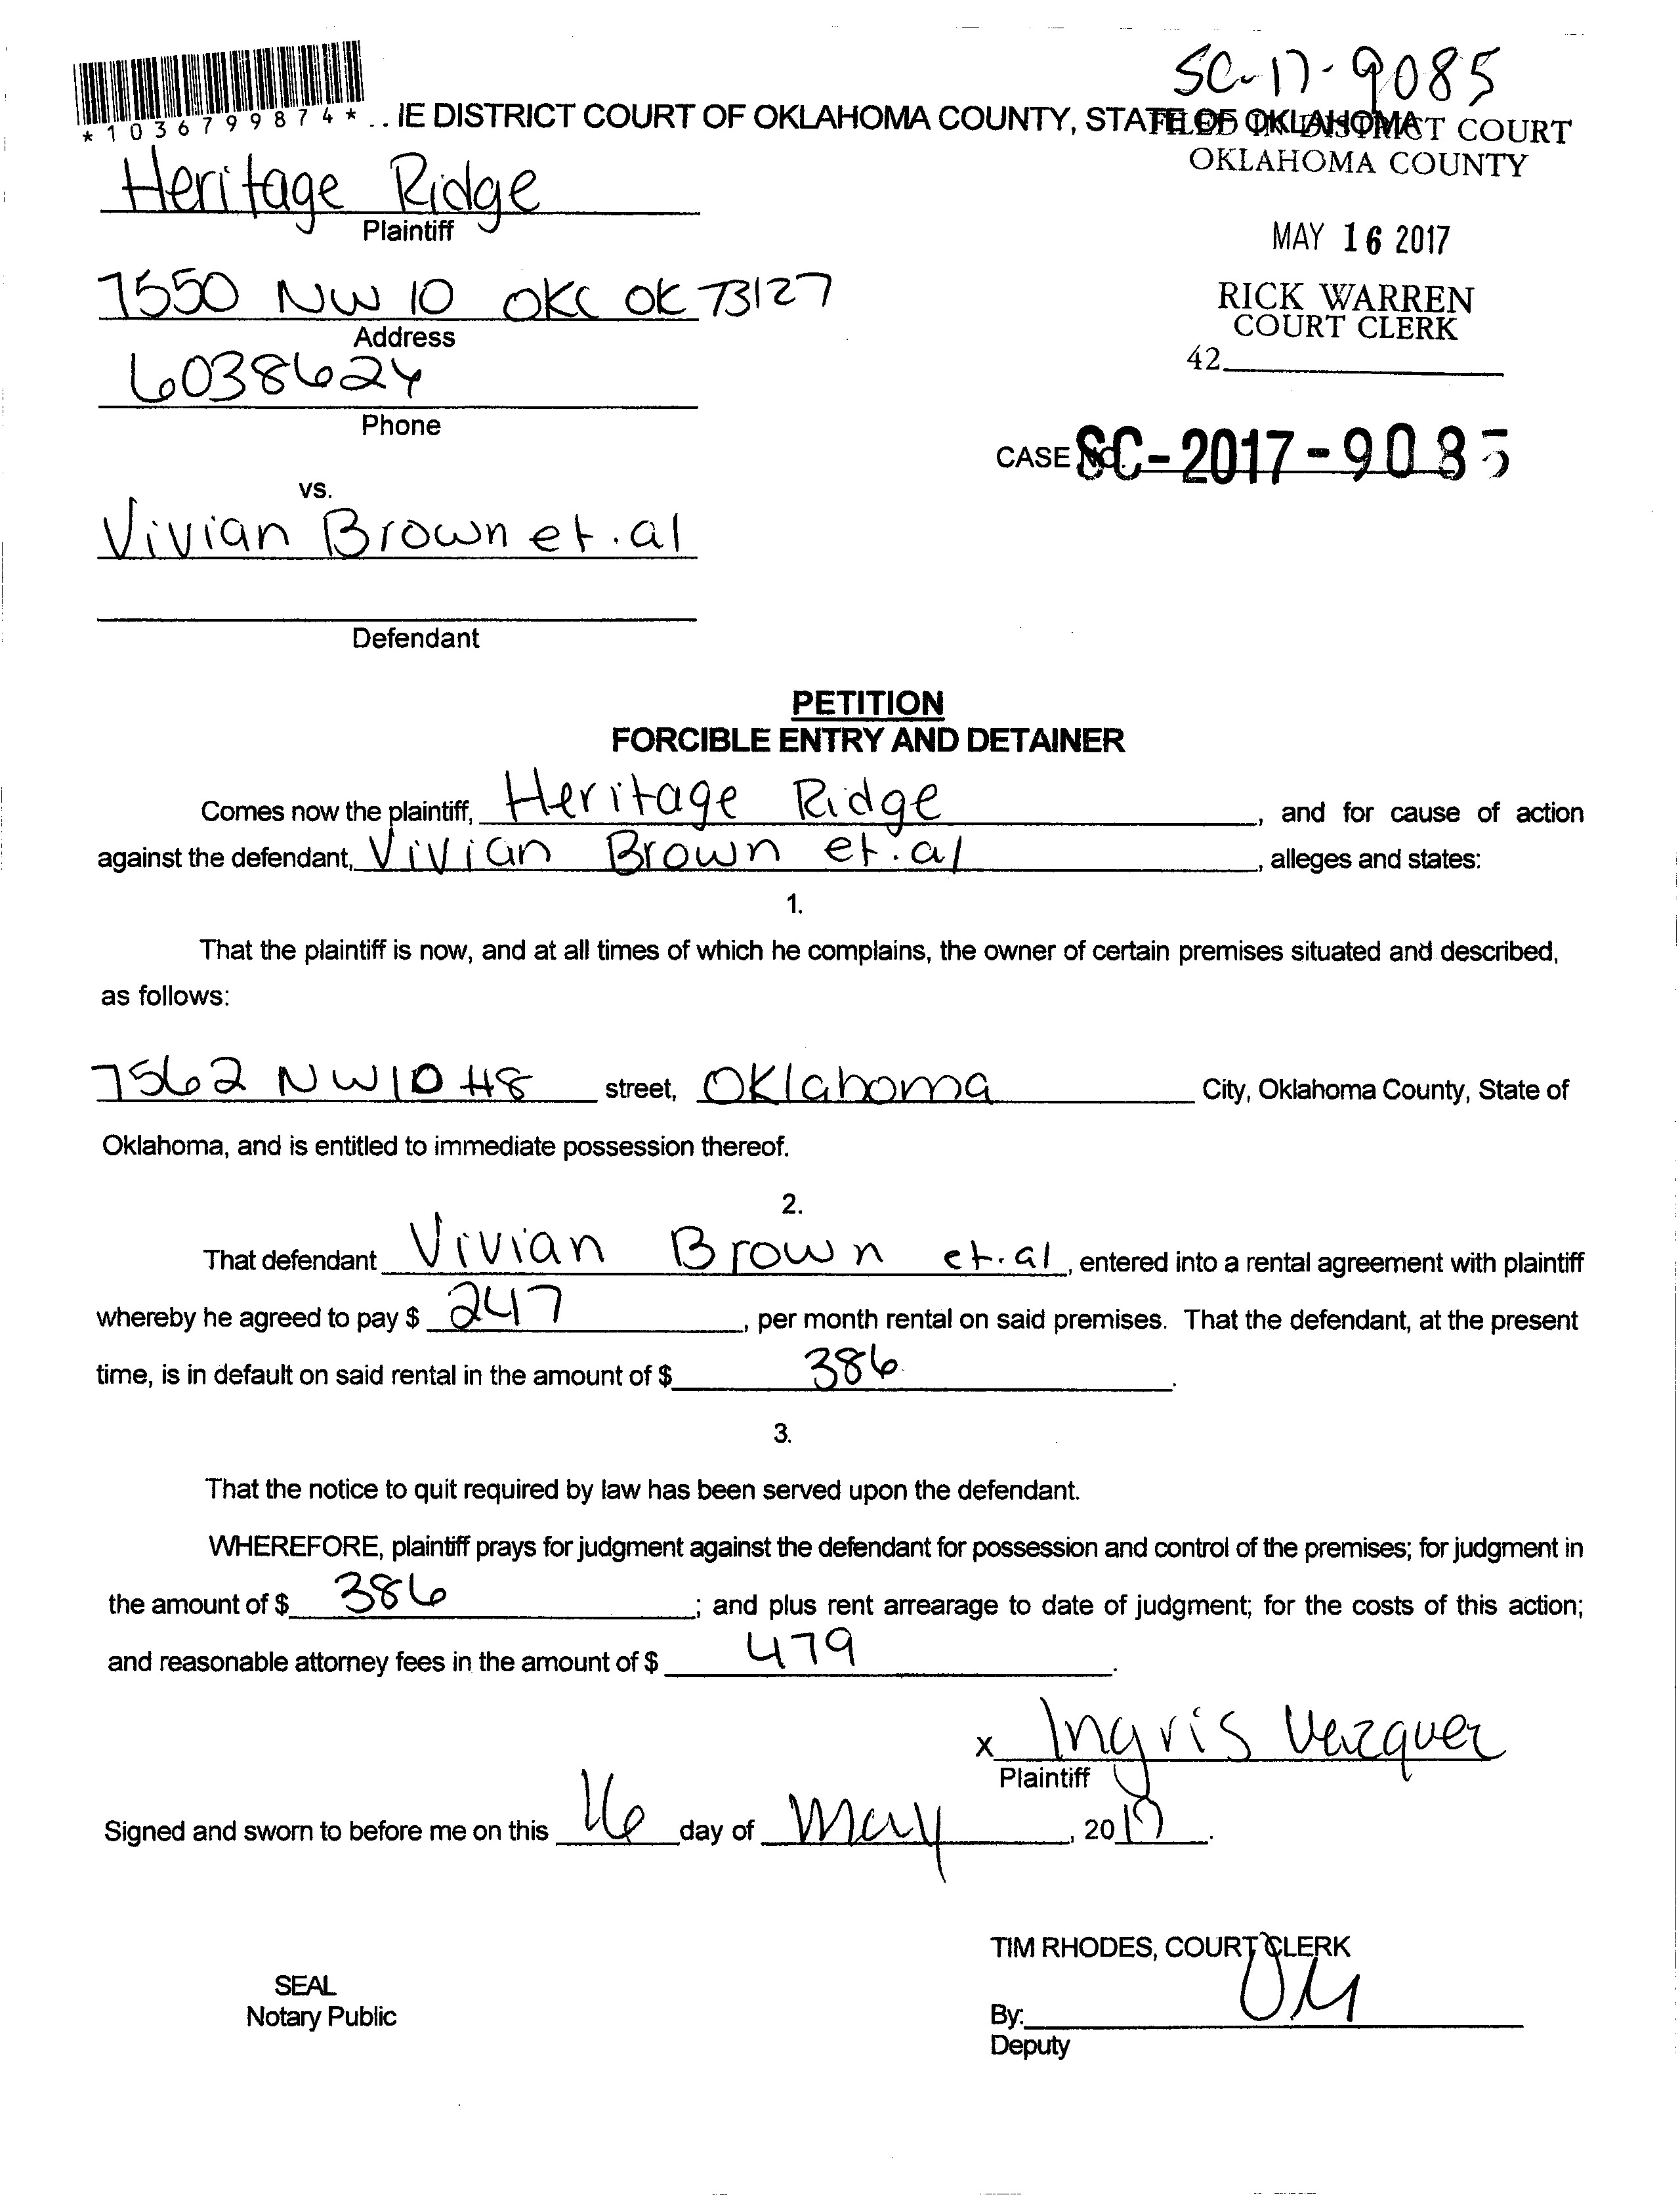 SC-17-9085
*1036799874* . . IE DISTRICT COURT OF OKLAHOMA COUNTY, STATE OF OKLAHOMA
FILED IN DISTRICT COURT
OKLAHOMA COUNTY
Heritage Ridge
Plaintiff
MAY 16 2017
7550 NW 10 OKC OK 73127
Address
RICK WARREN
COURT CLERK
42
6038624
Phone
CASE NO. SC-2017-9085
vs.
Vivian Brown et.al
Defendant
PETITION
FORCIBLE ENTRY AND DETAINER
Comes now the plaintiff, Heritage Ridge, and for cause of action
against the defendant, Vivian Brown et.al, alleges and states:
1.
That the plaintiff is now, and at all times of which he complains, the owner of certain premises situated and described,
as follows:
7562 NW10 #8 street, Oklahoma City, Oklahoma County, State of
Oklahoma, and is entitled to immediate possession thereof.
2.
That defendant Vivian Brown et.al, entered into a rental agreement with plaintiff
whereby he agreed to pay $ 247, per month rental on said premises. That the defendant, at the present
time, is in default on said rental in the amount of $ 386.
3.
That the notice to quit required by law has been served upon the defendant.
WHEREFORE, plaintiff prays for judgment against the defendant for possession and control of the premises; for judgment in
the amount of $ 386; and plus rent arrearage to date of judgment; for the costs of this action;
and reasonable attorney fees in the amount of $ 479.
x Ingris Vazquez
Plaintiff
Signed and sworn to before me on this 16 day of May, 2017.
TIM RHODES, COURT CLERK
SEAL
Notary Public
By:
Deputy